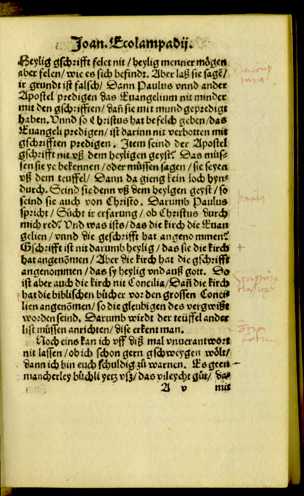 Joan. Ecolampadij.
Heylig gschrifft felet nit/ heylig menner mögen
aber felen/ wie es sich befindt. Aber laß sie sagē/
ir grundt ist falsch/ Dann Paulus vnnd ander
Apostel predigen das Euangelium nit minder
mit den gschrifften/ dañ sie mit mund gepredigt
haben. Vnnd so Christus hat befelch geben/ das
Euangeli predigen/ ist darinn nit verbotten mit
gschrifften predigen. Item seind der Apostel
gschrifft nit vß dem heyligen geyst? Das müs-
sen sie ye bekennen/ oder müssen sagen/ sie seyen
vß dem teuffel/ Dann da gieng kein loch hyn-
durch. Seind sie denn vß dem heylgen geyst/ so
seind sie auch von Christo. Darumb Paulus
spricht/ Sücht ir erfarung/ ob Christus durch
mich red? Vnd was ists/ das die kirch die Euan
gelien/ vnnd die gschrifft hat angenommen?
Gschrifft ist nit darumb heylig/ das sie die kirch
hat angenōmen/ Aber die kirch hat die gschrifft
angenommen/ das sy heylig vnd auß gott. Do
ist aber auch die kirch nit Concilia/ Dañ die kirch
hat die biblischen bücher vor den grossen Conci-
lien angenōmen/ so die gleubigen des vergwißt
worden seind. Darumb wirdt der teüffel ander
list müssen anrichten/ dise erkent man.
Noch eins kan ich vff diß mal vnuerantwort
nit lassen/ ob ich schon gern gschweygen wölt/
dann ich bin euch schuldig zü warnen. Es geen
mancherley büchli yetz vß/ das vileycht güt/ da-
A v mit